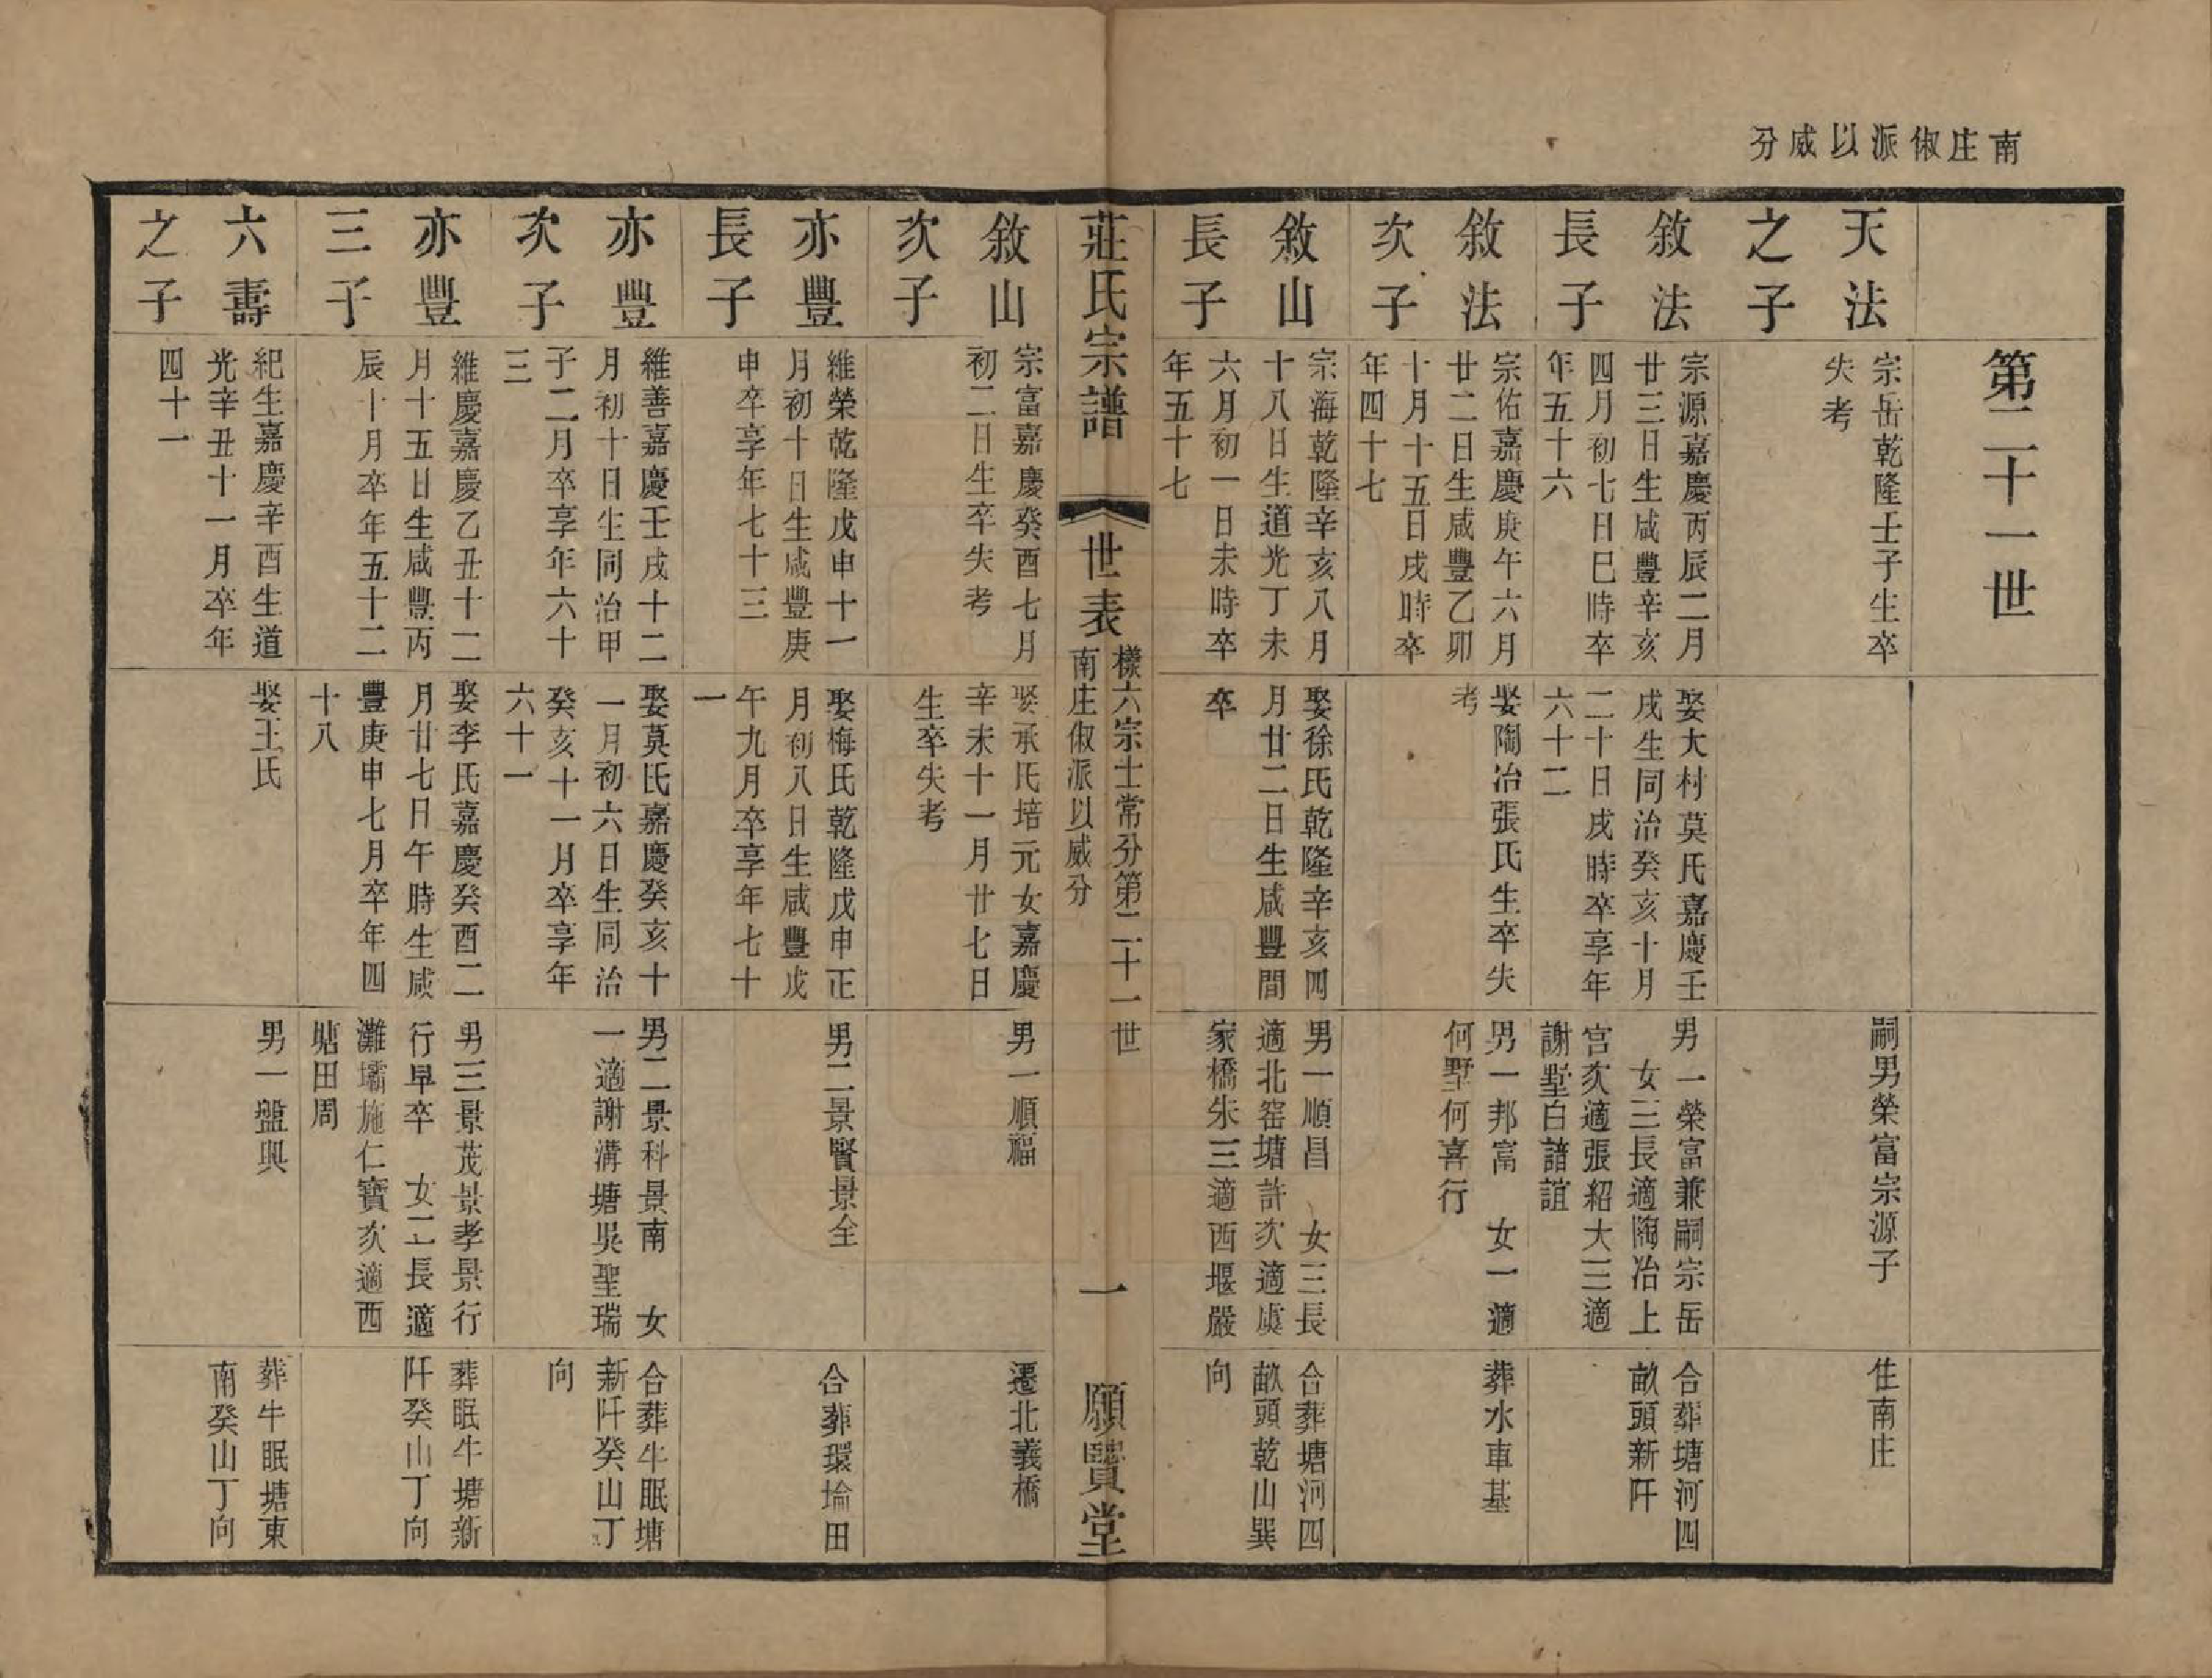 南庄俶派以威分
第二十一世
天法
之子
宗岳乾隆壬子生卒
失考
嗣男榮富宗源子
住南庄
敘法
長子
宗源嘉慶丙辰二月
廿三日生咸豐辛亥
四月初七日巳時卒
年五十六
娶大村莫氏嘉慶壬
戌生同治癸亥十月
二十日戌時卒享年
六十二
男一榮富兼嗣宗岳
女三長適陶冶上
宫次適張紹大三適
謝墅白諸誼
合葬塘河四
畝頭新阡
敘法
次子
宗佑嘉慶庚午六月
廿二日生咸豐乙卯
十月十五日戌時卒
年四十七
娶陶冶張氏生卒失
考
男一邦富 女一適
何墅何喜行
葬水車基
敘山
長子
宗海乾隆辛亥八月
十八日生道光丁未
六月初一日未時卒
年五十七
娶徐氏乾隆辛亥四
月廿二日生咸豐間
卒
男一順昌 女三長
適北窑塘許次適虞
家橋朱三適西堰嚴
合葬塘河四
畝頭乾山巽
向
莊氏宗譜
世表
樣六宗士常分第二十一世
南庄俶派以威分
一
願賢堂
敘山
次子
宗富嘉慶癸酉七月
初二日生卒失考
娶承氏培元女嘉慶
辛未十一月廿七日
生卒失考
男一順福
遷北義橋
亦豐
長子
維榮乾隆戊申十一
月初十日生咸豐庚
申卒享年七十三
娶梅氏乾隆戊申正
月初八日生咸豐戊
午九月卒享年七十
一
男二景賢景全
合葬環埨田
亦豐
次子
維善嘉慶壬戌十二
月初十日生同治甲
子二月卒享年六十
三
娶莫氏嘉慶癸亥十
一月初六日生同治
癸亥十一月卒享年
六十一
男二景科景南 女
一適謝溝塘吳聖瑞
合葬牛眠塘
新阡癸山丁
向
亦豐
三子
維慶嘉慶乙丑十二
月十五日生咸豐丙
辰十月卒年五十二
娶李氏嘉慶癸酉二
月廿七日午時生咸
豐庚申七月卒年四
十八
男三景茂景孝景行
行早卒 女二長適
灘壩施仁寶次適西
塘田周
葬眠牛塘新
阡癸山丁向
六壽
之子
紀生嘉慶辛酉生道
光辛丑十一月卒年
四十一
娶王氏
男一盤興
葬牛眠塘東
南癸山丁向